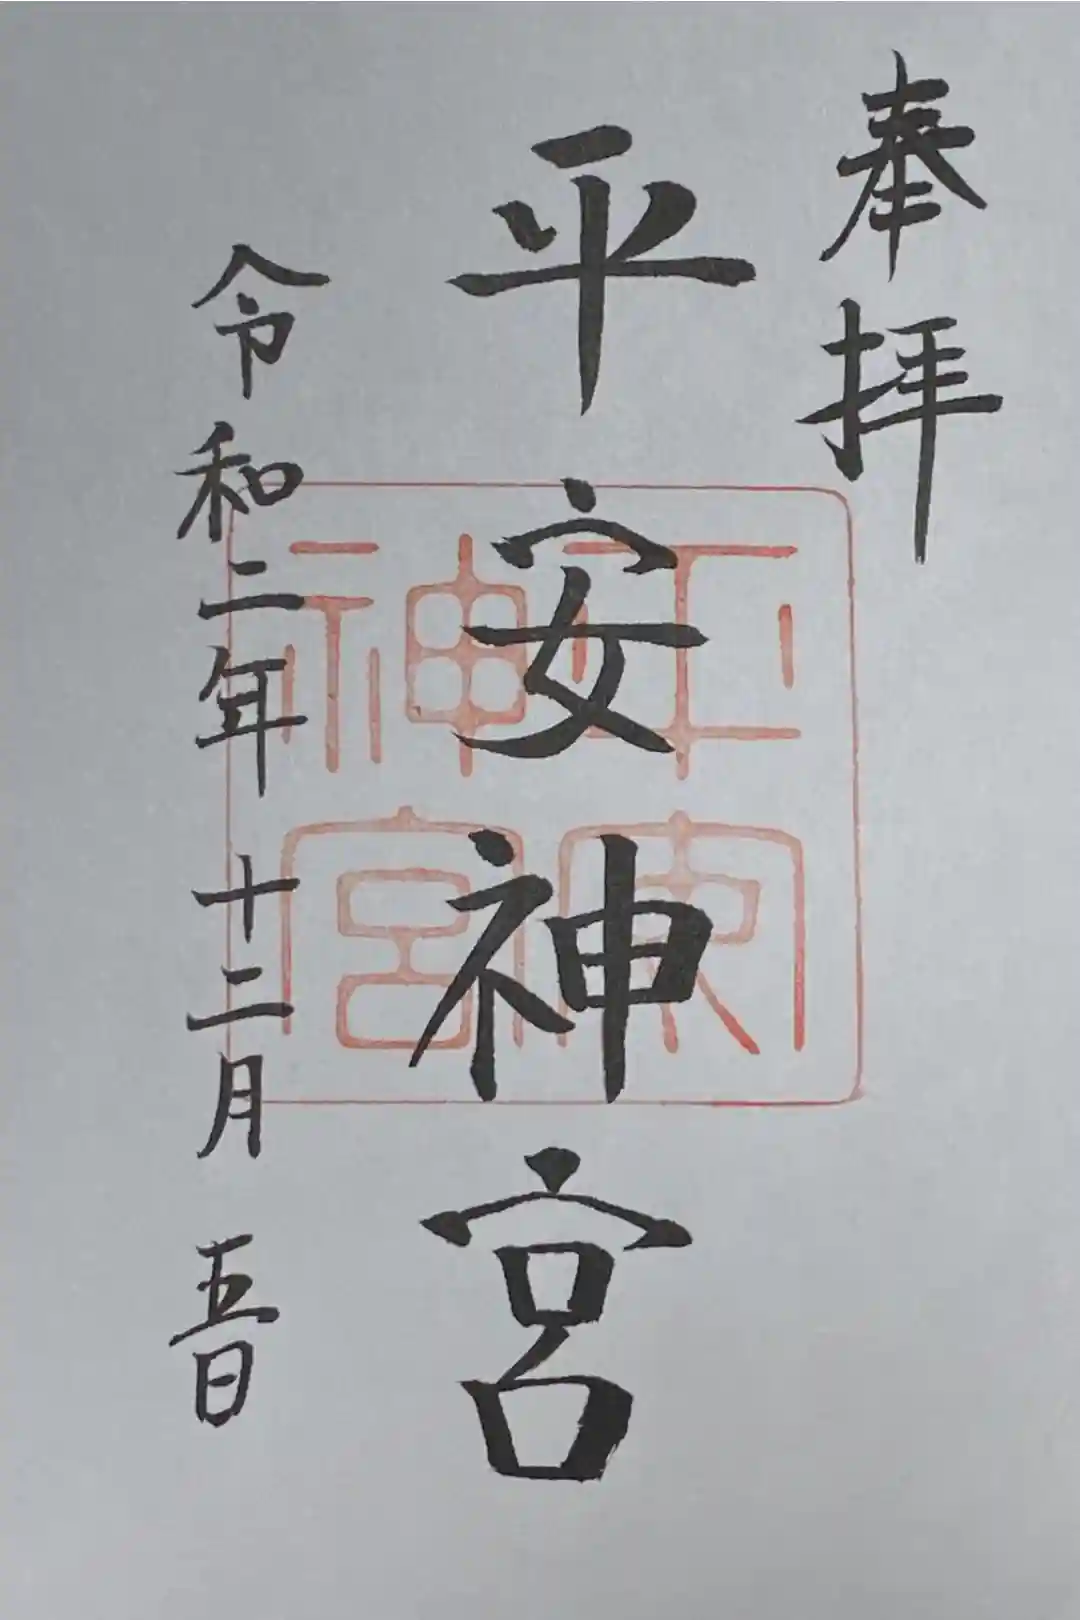 奉拝
平安神宮
令和二年十二月五日
平安神宮